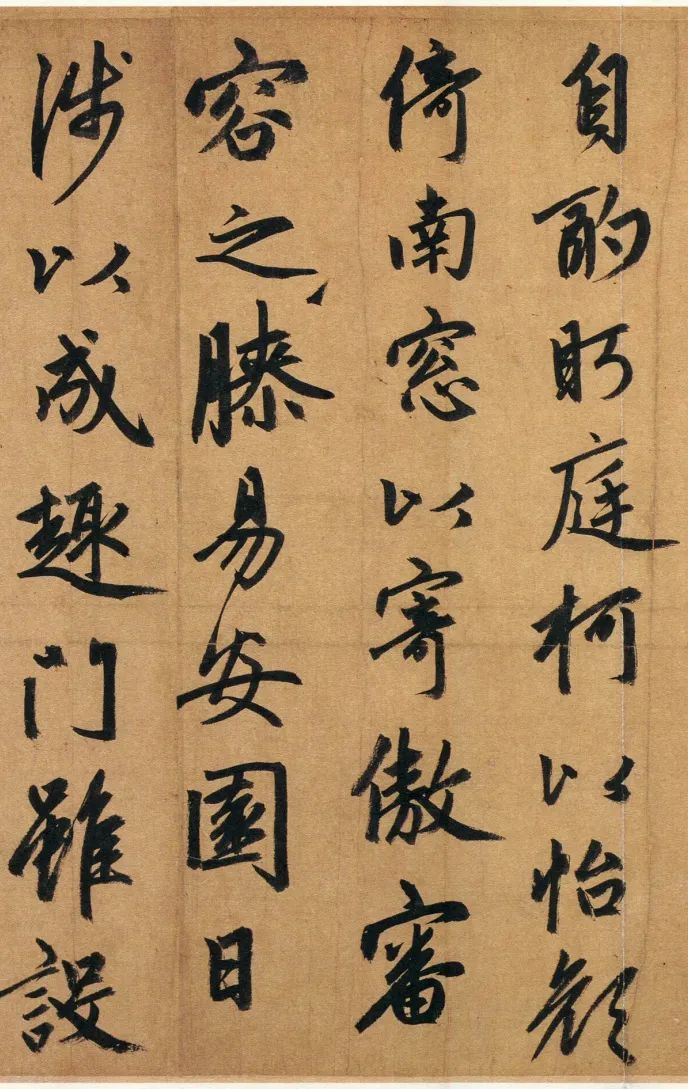 自酌眄庭柯以怡顏
倚南窓以寄傲審
容之膝易安園日
涉以成趣門雖設